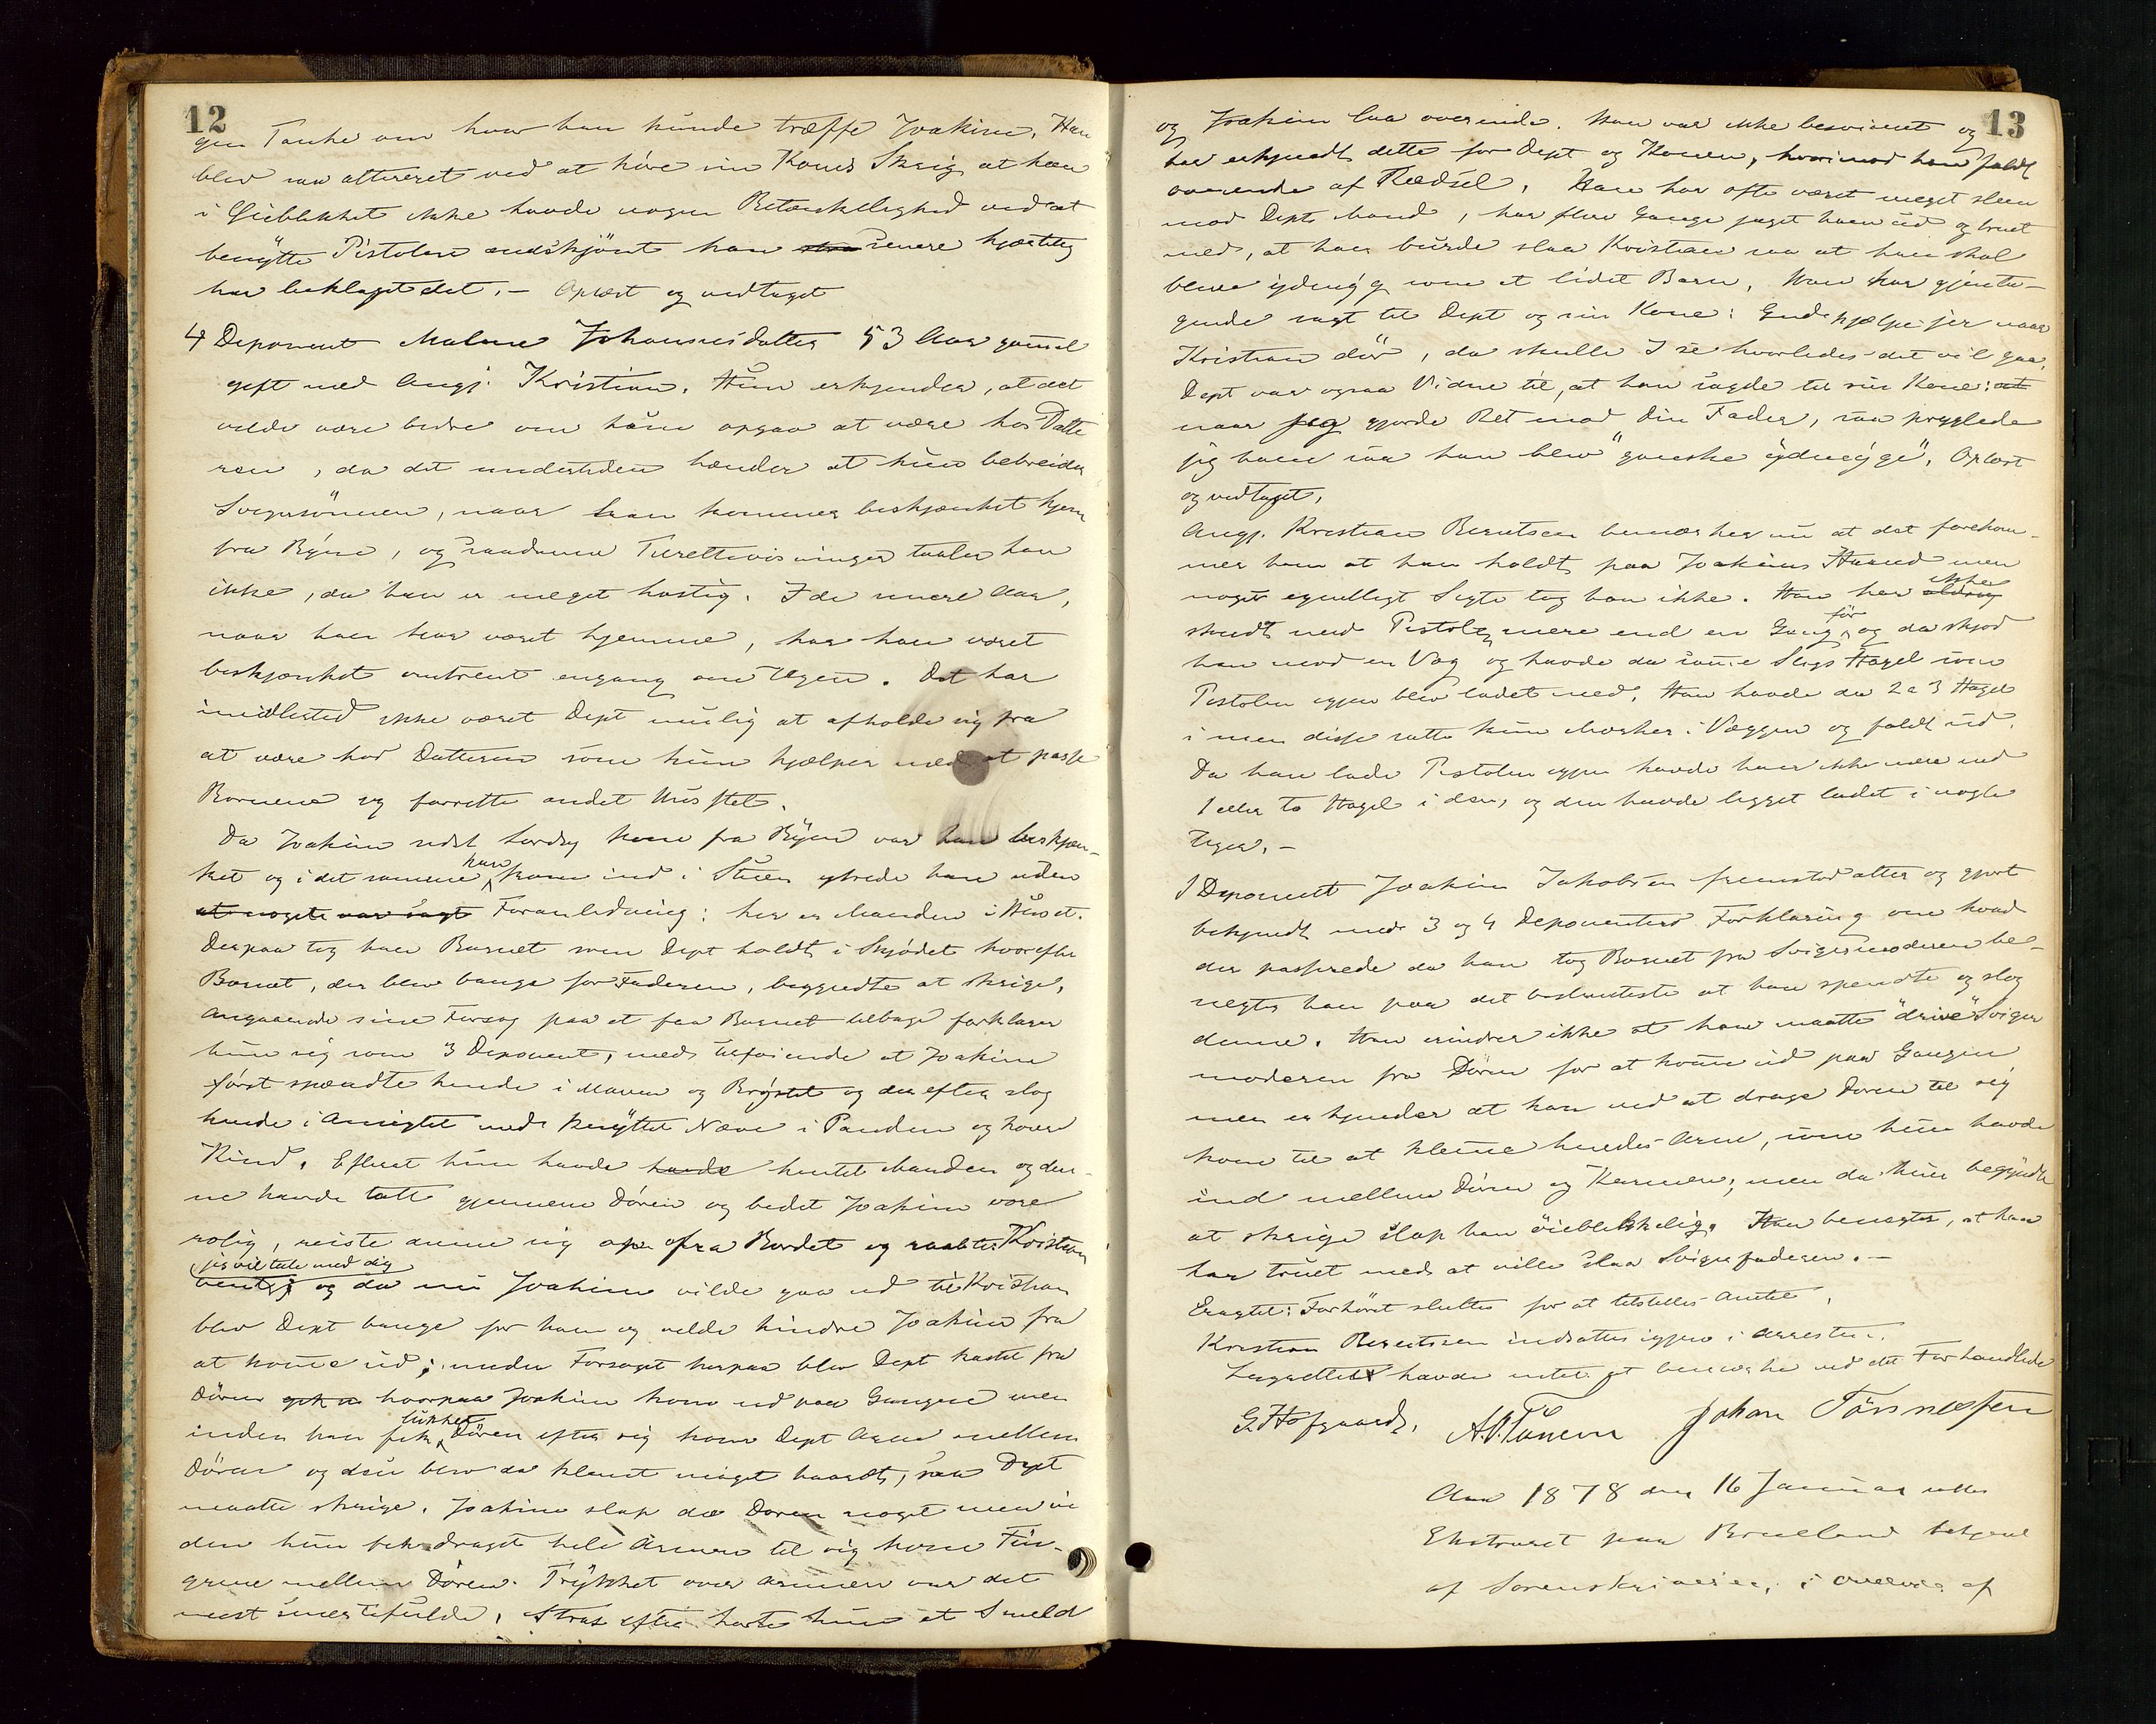 12
gen Tanke om hvor han kunde træffe Joakim. Han
blev saa altereret ved at høre sin Kones Skrig at han
i Øieblikket ikke havde nogen Betænkelighed ved at
benytte Pistolen endskjönt han senere hjertelig
har beklaget det. – Oplæst og vedtaget
4 Deponent Malene Johannesdatter 53 Aar gammel
gift med Angj. Kristian. Hun erkjender, at det
vilde være bedre om hun opgav at være hos Datte
ren, da det undertiden hænder at hun bebreider
Svigersönnen, naar han kommer beskjænket hjem
fra Byen, og saadanne Tilrettevisninger taaler han
ikke, da han er meget hastig. I de senere Aar,
naar han har været hjemme, har han været
beskjænket omtrent engang om Ugen. Det har
imidlertid ikke været Dept mulig at afholde sig fra
at være hos Datteren som hun hjælper med at passe
Bornene og forrette andet Husstel.
Da Joakim sidst Lørdag kom fra Byen var han beskjæn-
ket og i det samme han kom ind i Stuen ytrede han uden
at noget var sagt Foranledning: her er Manden i Huset.
Derpaa tog han Barnet som Dept holdt i Skjødet hvorefter
Barnet, der blev bange for Faderen, begyndte at skrige.
Angaaende sine Forsøg paa at faa Barnet tilbage forklarer
hun sig som 3 Deponent, med Tilføiende at Joakim
først spændte hende i Maven og Brystet og derefter slog
hende i Ansigtet med knyttet Næve i Panden og hver
Kind. Efterat hun havde havde hentet Manden og den-
ne havde talt gjennem Dören og bedet Joakim være
rolig, reiste denne sig op fra Bordet og raabte: Kristian
jeg vil tale med dig
vent, og da nu Joakim vilde gaa ud til Kristian
blev Dept bange for ham og vilde hindre Joakim fra
at komme ud; under Forsøget herpaa blev Dept kastet fra
Dören hvorpaa Joakim kom ud paa Gangen men
inden han fik lukket Dören efter sig kom Dept Arm mellem
Dören og den blev da klemt meget haardt, saa Dept
maatte skrige. Joakim slap da Doren noget men in
den hun fik draget hele Armen til sig kom Fin-
grene mellem Dören. Trykket over Armen var det
mest smertefulde. Strax efter hørte hun et Smeld
13
og Joakim laa overende. Han var ikke besvimet og
har erkjendt dette for Dept og Konen, hvorimod han faldt
overende af Rædsel. Han har ofte været meget slem
mod Depts Mand, har flere Gange jaget ham ud og truet
med, at han burde slaa Kristian saa at han skal
blive ydmyg som et lidet Barn. Han har gjenta-
gende sagt til Dept og sin Kone: Gud hjælpe jer naar
Kristian dör, da skulle I se hvorledes det vil gaa.
Dept var ogsaa Vidne til, at han sagde til sin Kone: at
naar jeg gjorde Ret mod Din Fader, saa pryglede
jeg ham saa han blev "ganske ydmyge". Oplæst
og vedtaget.
Angj. Kristian Berntsen bemærker nu at det forekom-
mer ham at han holdt paa Joakims Haand men
noget egentligt Sigte tog han ikke. Han har aldrig ikke
skudt med Pistolen mere end en Gang för og da skjød
han mod en Væg og havde da samme Slags Hagel som
Pistolen igjen blev ladet med. Han havde da 2 a 3 Hagel
i men disse satte kun Mærker i Væggen og faldt ud.
Da han lade Pistolen igjen havde han ikke mere end
1 eller to Hagel i den, og den havde ligget ladet i nogle
Uger. –
1 Deponent Joakim Jakobsen fremstod atter og gjort
bekjendt med 3 og 4 Deponenters Forklaring om hvad
der passerede da han tog Barnet fra Svigermoderen be-
negter han paa det bestemteste at han spændte og slog
denne. Han erindrer ikke at han maatte "drive" Sviger
moderen fra Dören for at komme ud paa Gangen
men erkjender at han ved at drage Doren til sig
kom til at klemme hendes Arm, som hun havde
ind mellem Dören og Karmen; men da hun begyndte
at skrige slap han öieblikkelig. Han benegter, at han
har truet med at ville slaa Svigerfaderen. –
Eragtet: Forhöret sluttes for at tilstilles Amtet.
Kristian Berentsen indsattes igjen i Arresten.
Lagrettet havde intet at bemærke ved det Forhandlede
G. Hofgaard. Johan Tönnesen
Aar 1878 den 16 Januar sattes
Extraret paa Bruelland betjent
af Sorenskriveren, i Overvær af